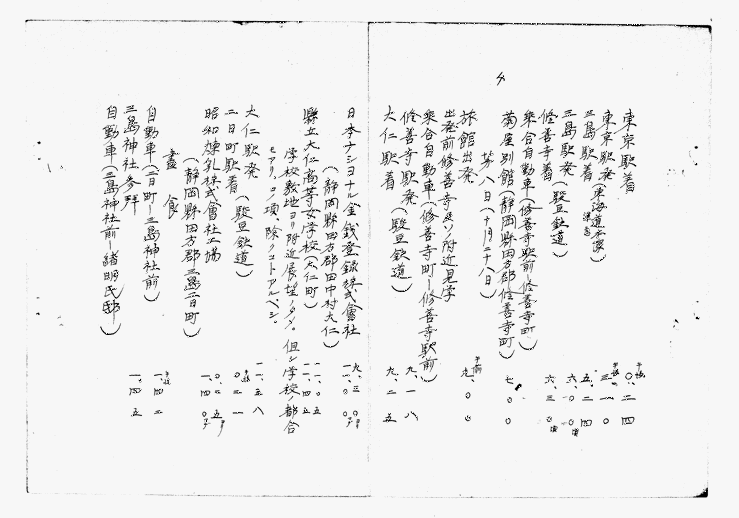 4
東京駅着 午後 〇、二四
東京駅発 午後 三、一〇
三島駅着(東海道本線乗車) 五、二四
三島駅発(駿豆鉄道) 六、〇〇頃
修善寺着 六、三〇頃
乗合自動車(修善寺駅前―修善寺町)
菊屋別館(静岡縣田方郡修善寺町) 七、〇〇
第八日(十月二十八日)
旅館出発 午前 九、〇〇
出発前修善寺及ソノ附近見学
乗合自動車(修善寺町―修善寺駅前)
修善寺駅発 九、一八
大仁駅着(駿豆鉄道) 九、二五
日本ナショナル金銭登録株式會社 九、三〇
(静岡縣田方郡田中村大仁) 一一、〇〇
縣立大仁高等女学校(大仁町) 一一、〇五
一一、四五
学校敷地ヨリ附近展望ノタメ。但シ学校ノ都合
モアリ、コノ項、除クコトアルベシ。
大仁駅発 一一、五八
二日町駅着(駿豆鉄道) 午後 〇、二一
昭和煉乳株式會社工場 〇、二五
(静岡縣田方郡三島二日町) 一、四〇
晝食
自動車(二日町―三島神社前) 午後 一、四二
三島神社参拝 一、四五
自動車(三島神社前―緒明氏邸)